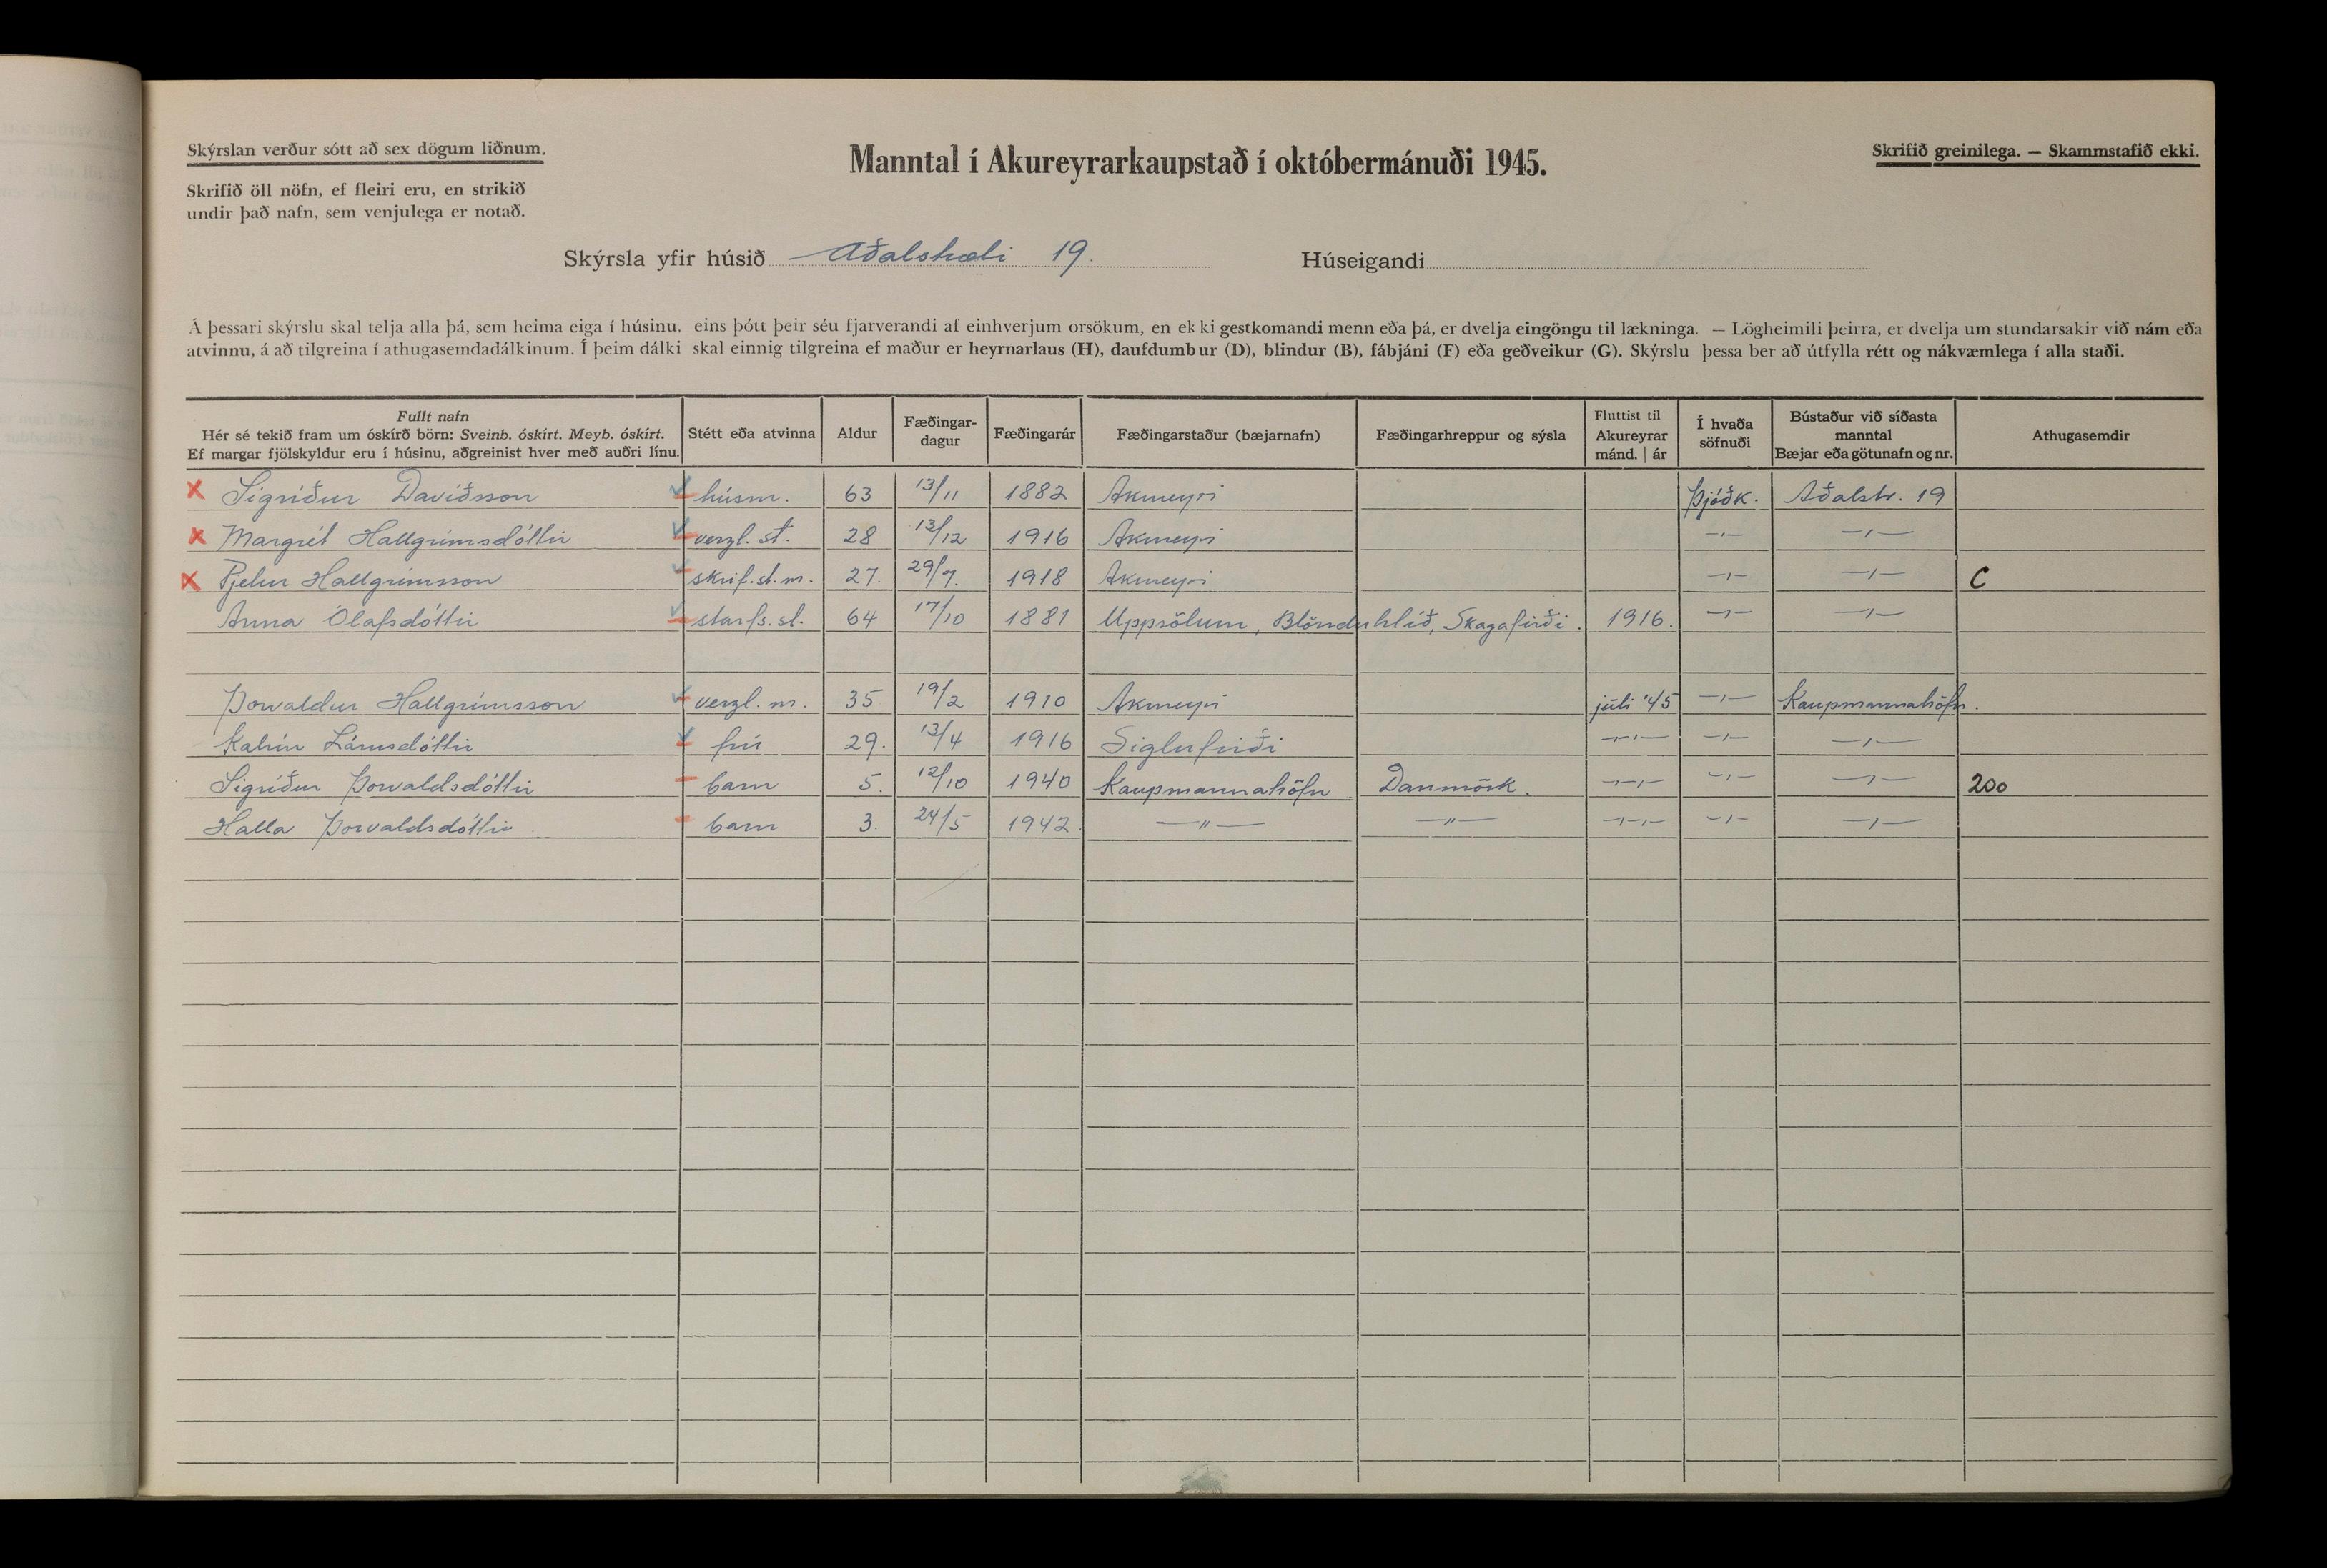 Skýrslan verður sótt að sex dögum liðnum.
Skrifið öll nöfn, ef fleiri eru, en strikið
undir það nafn, sem venjulega er notað.
Manntal í Akureyrarkaupstað í októbermánuði 1945.
Skrifið greinilega. — Skammstafið ekki.
Skýrsla yfir húsið Aðalstræti 19. Húseigandi
Á þessari skýrslu skal telja alla þá, sem heima eiga í húsinu, eins þótt þeir séu fjarverandi af einhverjum orsökum, en ekki gestkomandi menn eða þá, er dvelja eingöngu til lækninga. — Lögheimili þeirra, er dvelja um stundarsakir við nám eða
atvinnu, á að tilgreina í athugasemdadálkinum. Í þeim dálki skal einnig tilgreina ef maður er heyrnarlaus (H), daufdumbur (D), blindur (B), fábjáni (F) eða geðveikur (G). Skýrslu þessa ber að útfylla rétt og nákvæmlega í alla staði.
Fullt nafn
Hér sé tekið fram um óskírð börn: Sveinb. óskírt. Meyb. óskírt.
Ef margar fjölskyldur eru í húsinu, aðgreinist hver með auðri línu.
Stétt eða atvinna
Aldur
Fæðingar-
dagur
Fæðingarár
Fæðingarstaður (bæjarnafn)
Fæðingarhreppur og sýsla
Fluttist til
Akureyrar
mánd. | ár
Í hvaða
söfnuði
Bústaður við síðasta
manntal
Bæjar eða götunafn og nr.
Athugasemdir
Sigríður Davíðsson húsm. 63 13/11 1882 Akureyri Þjóðk. Aðalstr. 19
Margrét Hallgrímsdóttir verzl. st. 28 13/12 1916 Akureyri —〃— —〃—
Pjetur Hallgrímsson skrif.st.m. 27. 29/7. 1918 Akureyri —〃— —〃— C
Anna Ólafsdóttir starfs.st. 64 17/10 1881 Uppsölum, Blönduhlíð, Skagafirði. 1916. —〃— —〃—
Þorvaldur Hallgrímsson verzl. m. 35 19/2 1910 Akureyri júlí '45 —〃— Kaupmannahöfn.
Katrín Lárusdóttir frú 29. 13/4 1916 Siglufirði —〃— —〃— —〃—
Sigríður Þorvaldsdóttir barn 5. 12/10 1940 Kaupmannahöfn Danmörk. —〃— —〃— —〃— 200
Halla Þorvaldsdóttir barn 3. 24/5 1942. —〃— —〃— —〃— —〃— —〃—